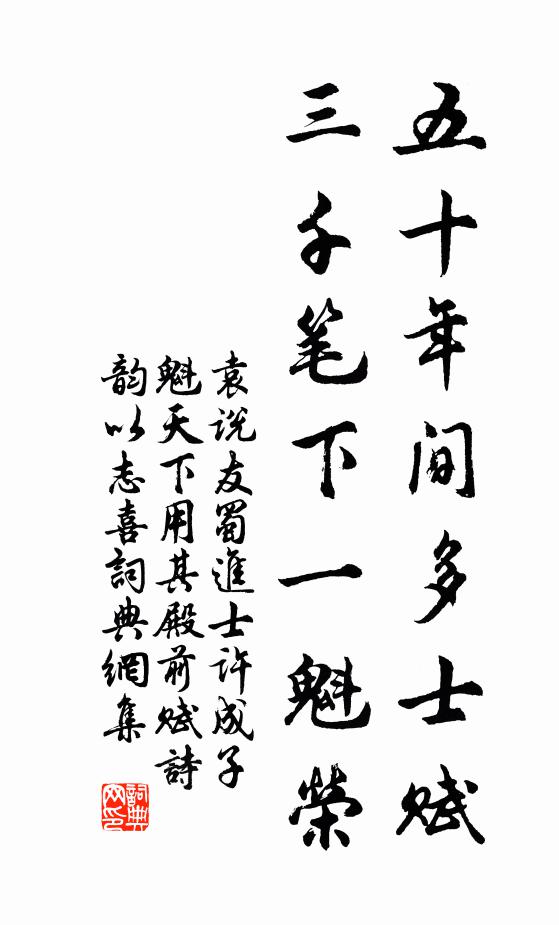 五十年间多士赋
三千笔下一魁榮
袁说友蜀進士许成子
魁天下用其殿前赋詩
韵以志喜詞典網集
詞典
网印